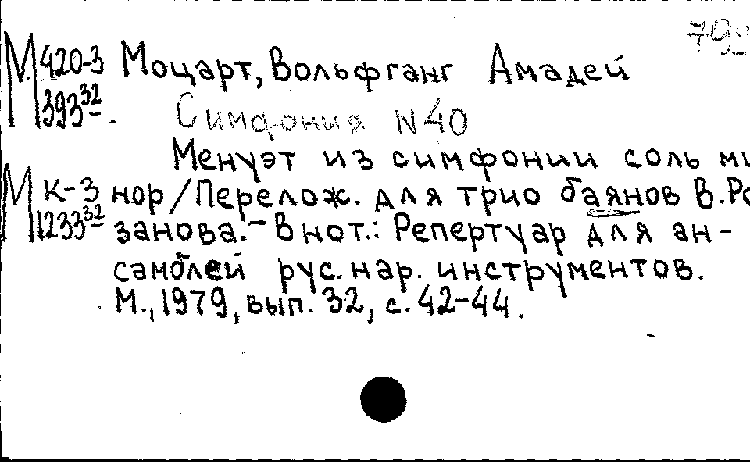 М 420-3 Моцарт, Вольфганг Амадей
393 32.
Симфония N 40
Менуэт из симфонии соль ми
М К-3 нор/Перелож. для трио баянов В. Ро
1233 32 занова.- В нот.: Репертуар для ан-
самблей рус. нар. инструментов.
М., 1979, вып. 32, с. 42-44.